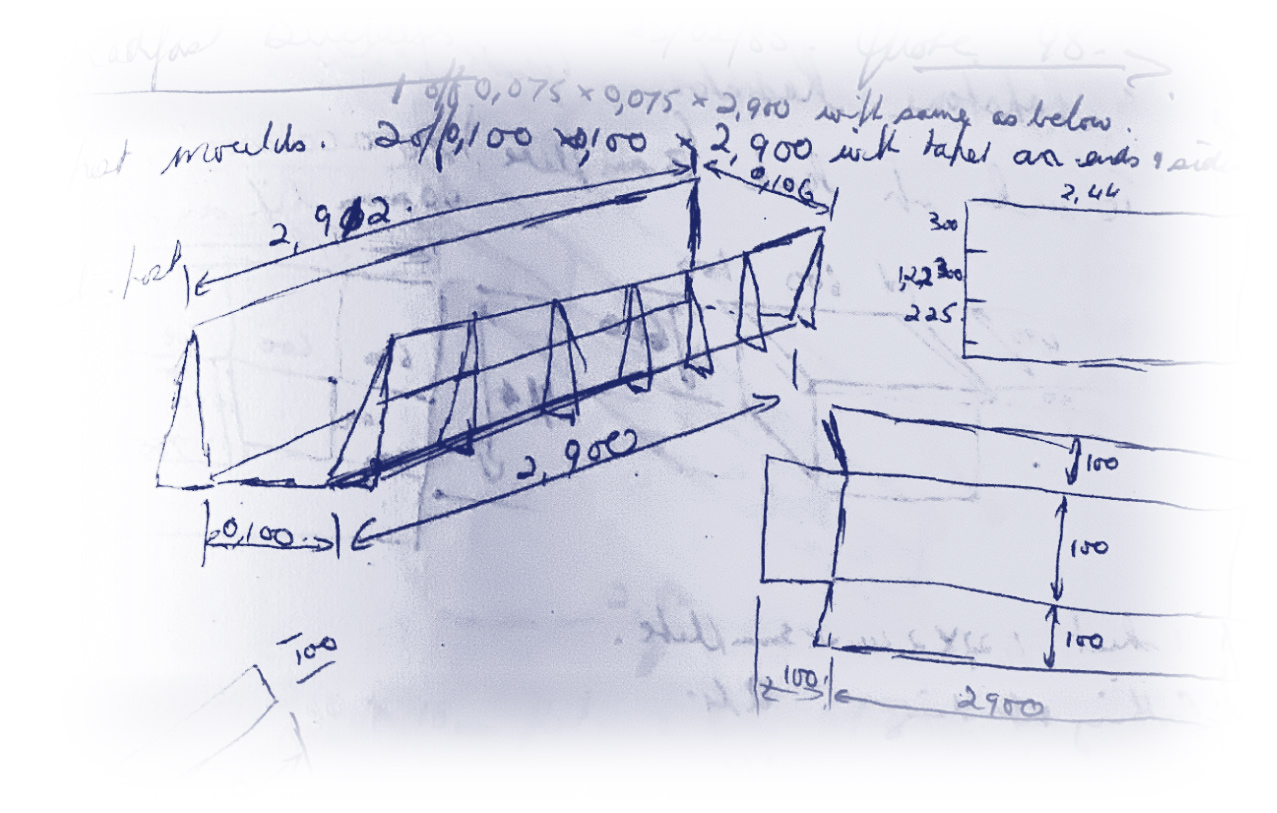 Quote 98-
1 off 0,075 × 0,075 × 2,900 with same as below.
moulds. 2 off 0,100 × 0,100 × 2,900 with taper on ends & side
0,106
2,44
2,902.
300
1,22 300
225
100
2,900
100
0,100
100
100
100
2900